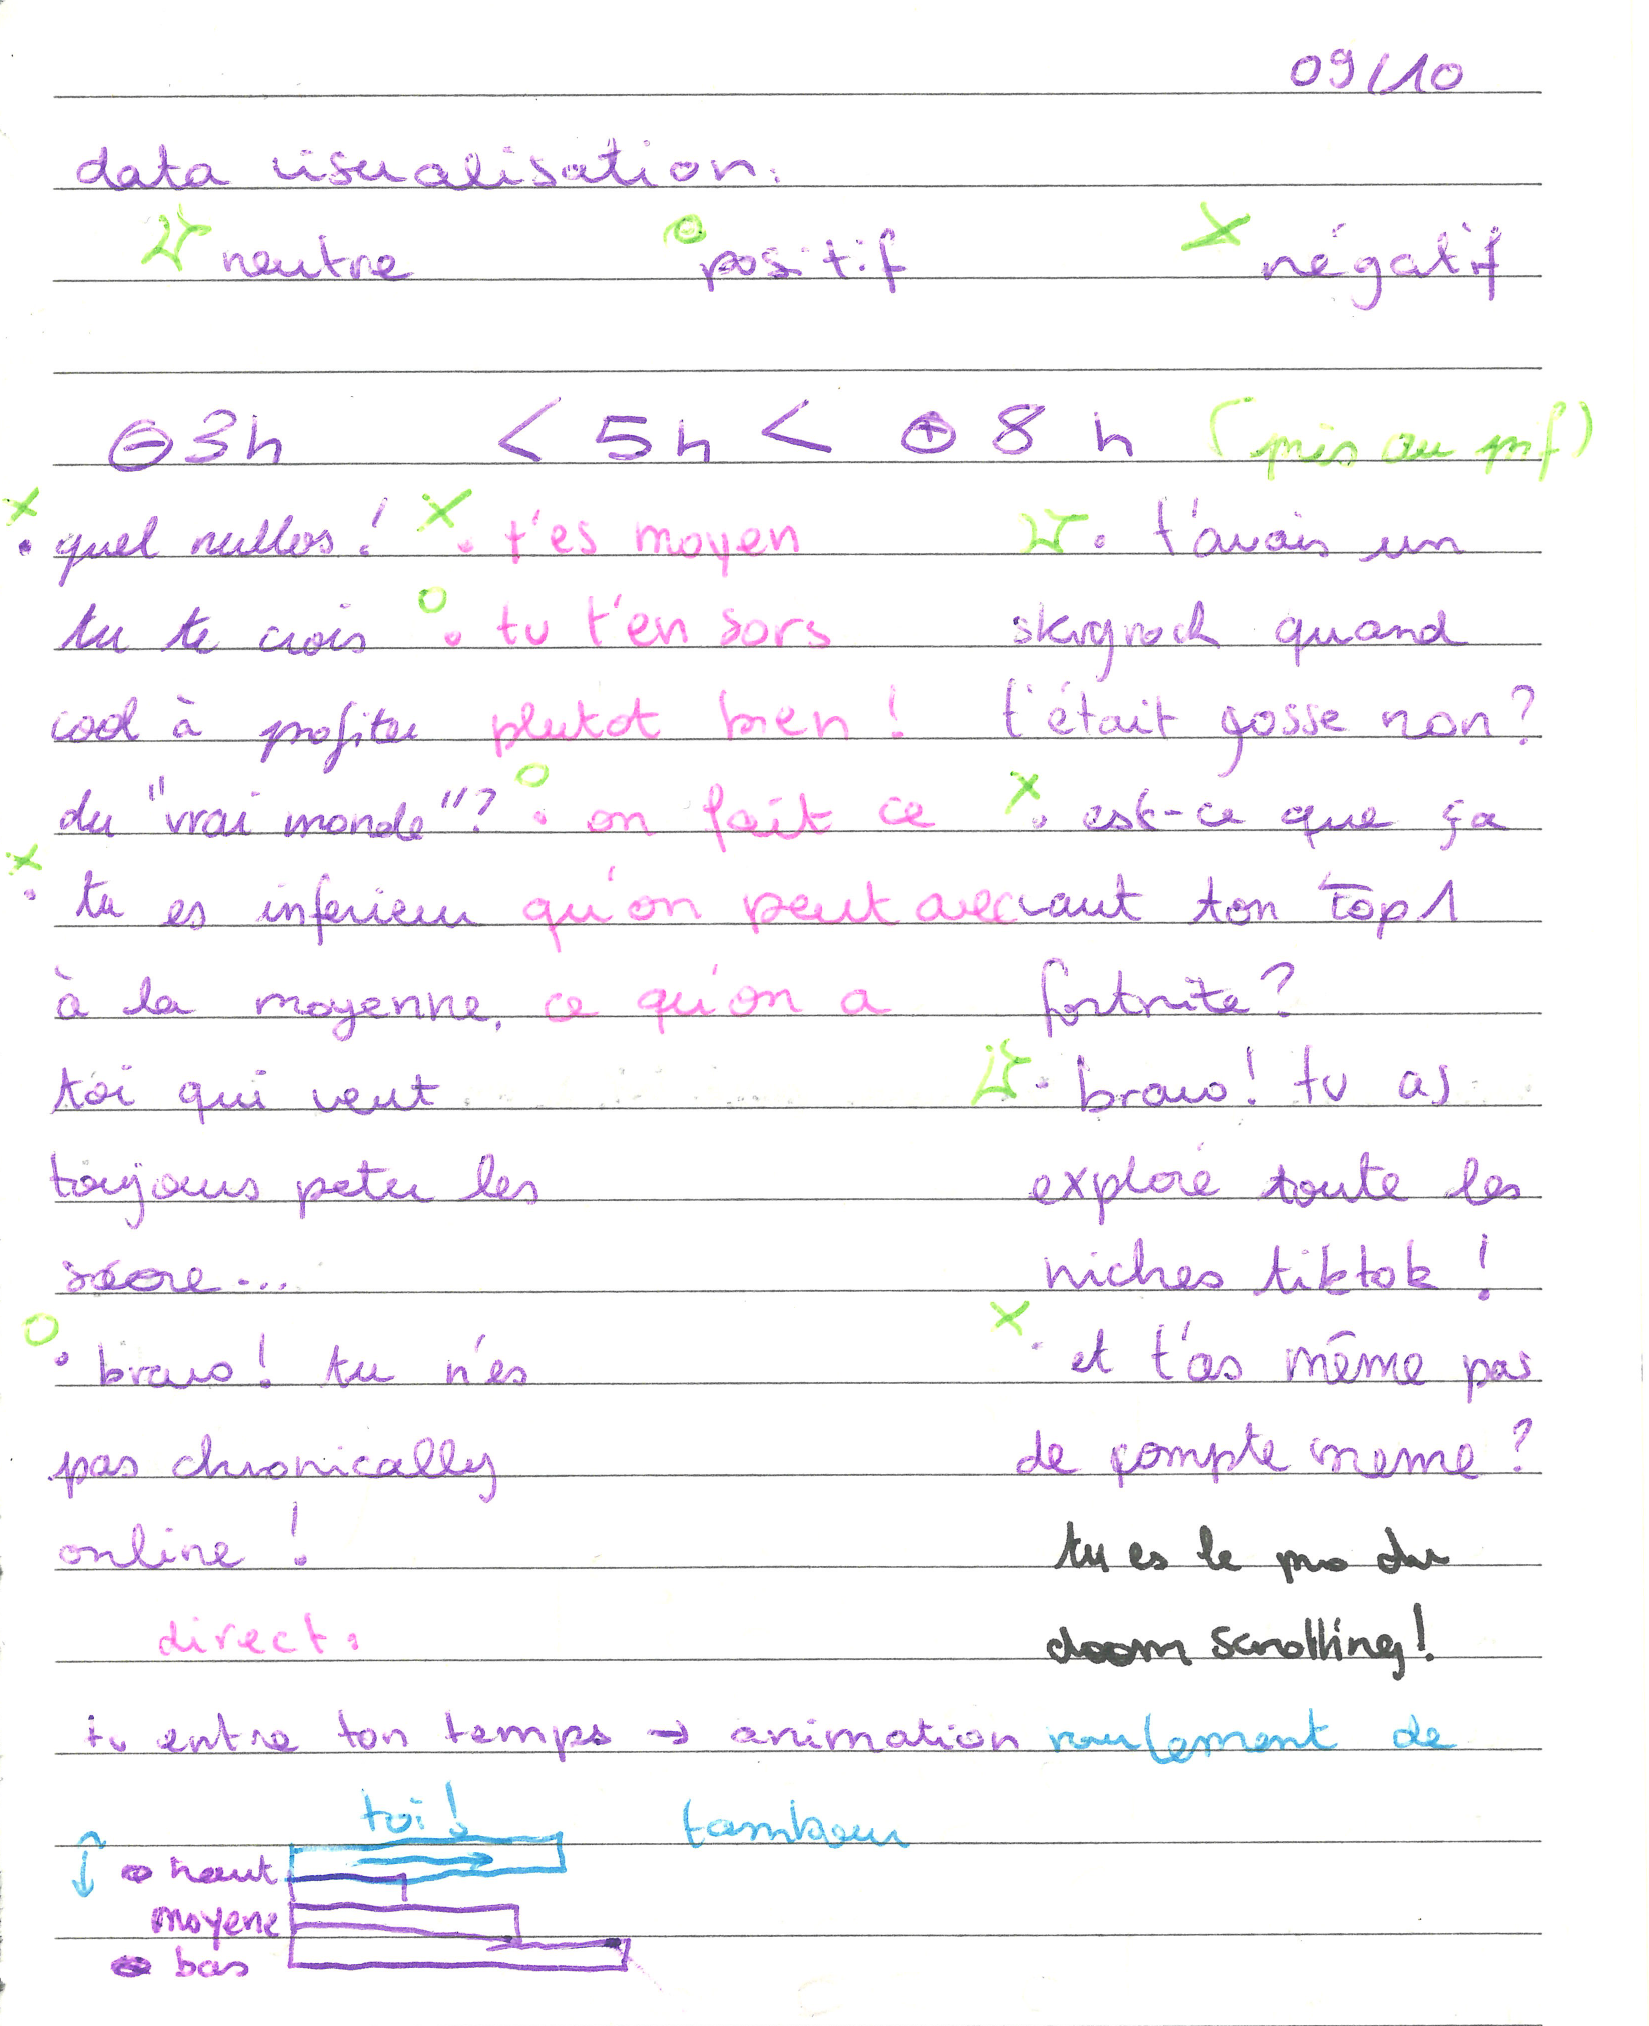 09/10
data visualisation.
neutre positif négatif
⊖3h < 5h < ⊕ 8 h (pris au pif)
• quel nullos !
tu te crois
cool à profiter
du "vrai monde"?
• tu es inferieur
à la moyenne,
toi qui veut
toujours peter les
score...
• bravo! tu n'es
pas chronically
online !
• t'es moyen
• tu t'en sors
plutot bien !
• on fait ce
qu'on peut avec
ce qu'on a
• t'avais un
quand
t'était gosse non?
• est-ce que ça
vaut ton Top 1
fortnite?
• bravo! tu as
exploré toute les
niches tiktok !
• et t'as même pas
de compte meme ?
tu es le pro du
doom scrolling!
direct:
tu entre ton temps → animation roulement de
tambour
toi !
haut
moyene
bas